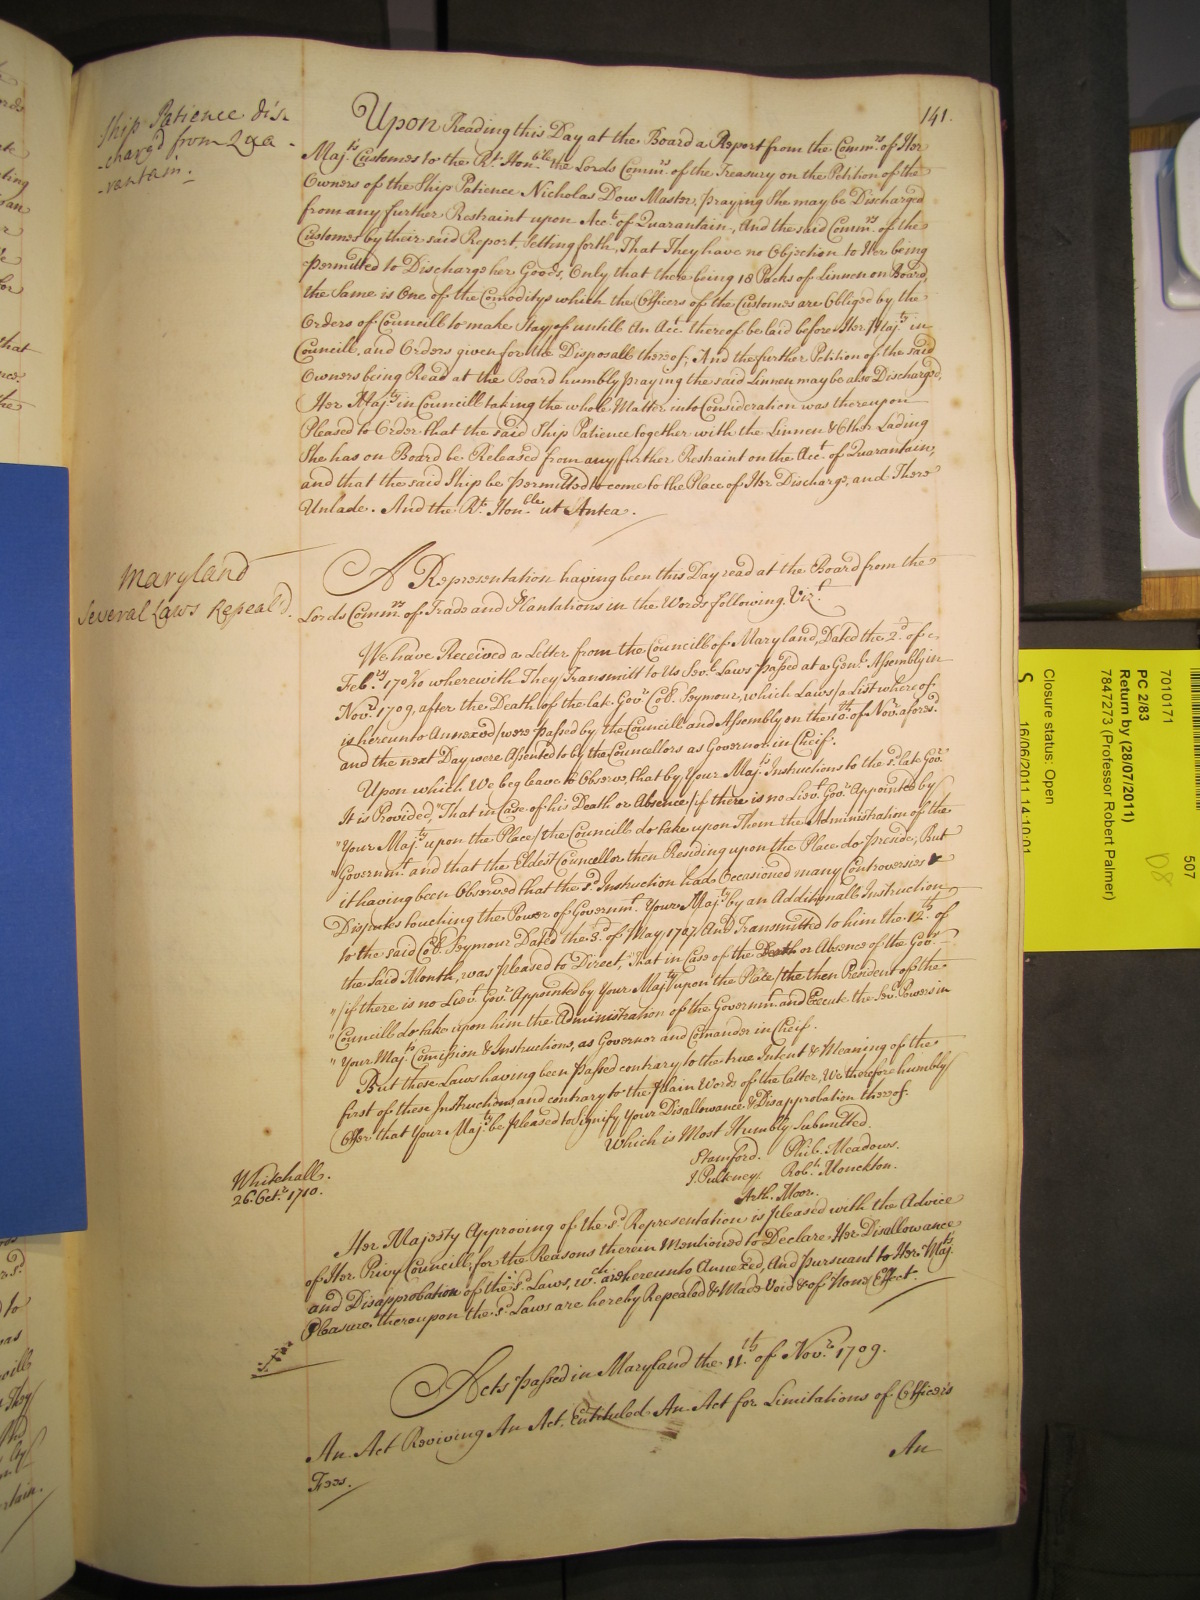 141.
Ship Patience dis-
-charg'd from Qua-
-rantain.
Upon Reading this Day at the Board a Report from the Comm.rs of Her
Maj.ts Customes to the R.t Hon.ble the Lords Comm.rs of the Treasury on the Petition of the
Owners of the Ship Patience Nicholas Dow Master, praying She may be Discharged
from any further Restraint upon Acc.t of Quarantain, And the said Comm.rs of the
Customes by their said Report, Setting forth, That They have no Objection to Her being
permitted to Discharge her Goods, Only that there being 18 Packs of Linnen on Board,
the Same is One of the Comoditys which the Officers of the Customes are Obliged by the
Orders of Councill to make Stay of untill An Acc.t thereof be laid before Her Maj.ty in
Councill, and Orders given for the Disposall thereof; And the further Petition of the said
Owners being Read at the Board humbly praying the said Linnen may be also Discharged,
Her Maj.ty in Councill taking the whole Matter into Consideration was thereupon
Pleased to Order that the said Ship Patience together with the Linnen & Other Lading
She has on Board be Released from any further Restraint on the Acc.t of Quarantain,
and that the said Ship be permitted to come to the Place of Her Discharge, and There
Unlade. And the R.t Hon.ble ut Antea.
Maryland
Several Laws Repeal'd.
A Representation having been this Day read at the Board from the
Lords Comm.rs of Trade and Plantations in the Words following. Viz.t
We have Received a Letter from the Councill of Maryland, Dated the 2.d of
Feb.ry 1709/10 wherewith They Transmitt to Us Sev.ll Laws passed at a Gen.l Assembly in
Nov.r 1709, after the Death of the late Gov.r Coll. Seymour, which Laws /a List whereof
is hereunto Annexed/ were passed by the Councill and Assembly on the 10.th of Nov.r afores.d
and the next Day were Assented to by the Councellors as Governor in Cheif.
Upon which We beg leave to Observe, that by Your Maj.ts Instructions to the s.d late Gov.r
It is Provided, That in Case of his Death or Absence /if there is no Liev.t Gov.r Appointed by
"Your Maj.ty upon the Place/ the Councill do take upon Them the Administration of the
"Governm.t and that the Eldest Councellor then Residing upon the Place do preside, But
it having been Observed that the s.d Instruction had Occasioned many Controversies &
Disputes touching the Power of Governm.t Your Maj.ty by an Additionall Instruction
to the said Coll. Seymour Dated the 3.d of May 1707, And Transmitted to him the 12.th of
the said Month, was pleased to Direct, "That in Case of the Death or Absence of the Gov.r
"/if there is no Liev.t Gov.r Appointed by Your Maj.ty upon the Place/ the then President of the
"Councill do take upon him the Administration of the Governm.t and Execute the Sev.ll Powers in
"Your Maj.ts Comission & Instructions, as Governor and Comander in Cheif.
But these Laws having been passed contrary to the true Intent & Meaning of the
first of these Instructions, and contrary to the plain Words of the latter, We therefore humbly
Offer that Your Maj.ty be pleased to Signify Your Disallowance & Disapprobation thereof.
Which is Most Humbly Submitted.
Stamford. Phil. Meadows.
J. Pulteney. Rob.t Monckton.
Arth. Moor.
Whitehall.
26. Oct.r 1710.
Her Majesty Approving of the s.d Representation is pleased with the Advice
of Her Privy Councill, for the Reasons therein Mentioned to Declare, Her Disallowance
and Disapprobation of the s.d Laws, w.ch are hereunto Annexed, And pursuant to Her Maj.ts
Pleasure thereupon the s.d Laws are hereby Repealed & Made Void & of None Effect.
Acts passed in Maryland the 11.th of Nov.r 1709.
An Act Reviving An Act, Entituled An Act for Limitations of Officers
Fees.
An
7010171
507
PC 2/83
Return by (28/07/2011)
7847273 (Professor Robert Palmer)
D8
Closure status: Open
S
16/06/2011 14:10:01